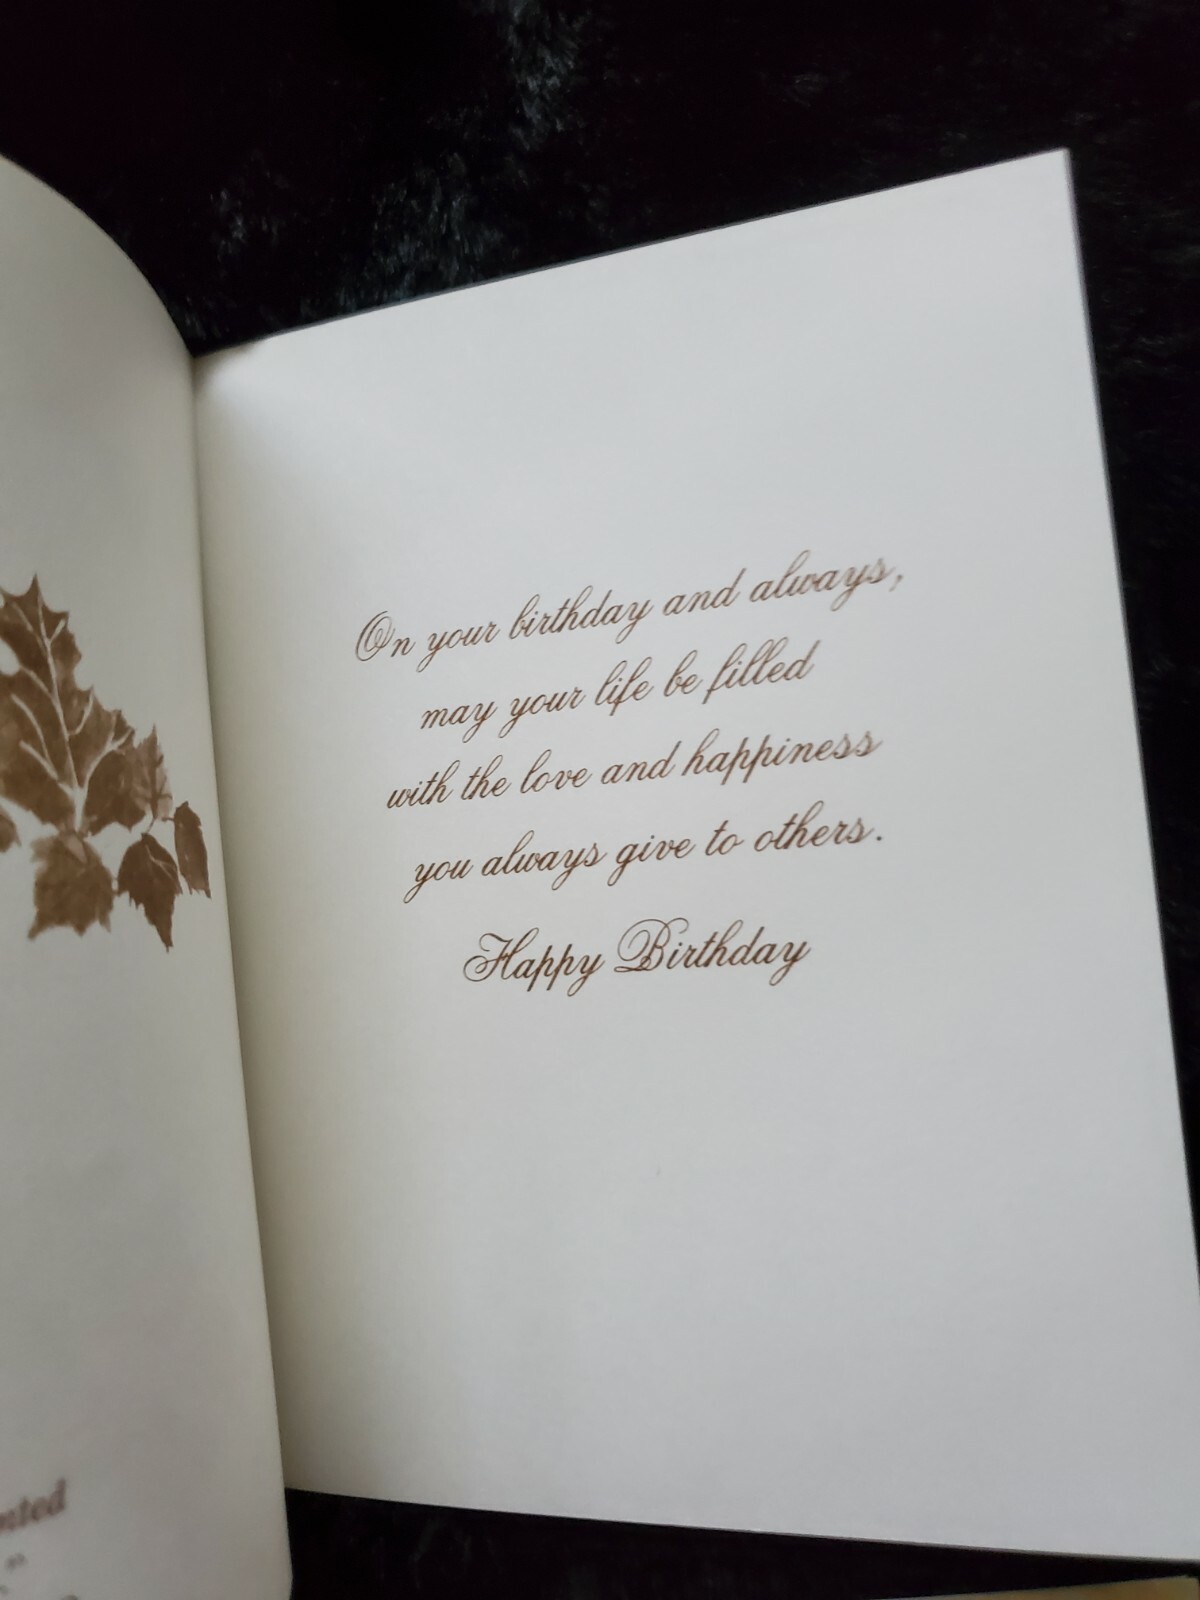 On your birthday and always,
may your life be filled
with the love and happiness
you always give to others.
Happy Birthday